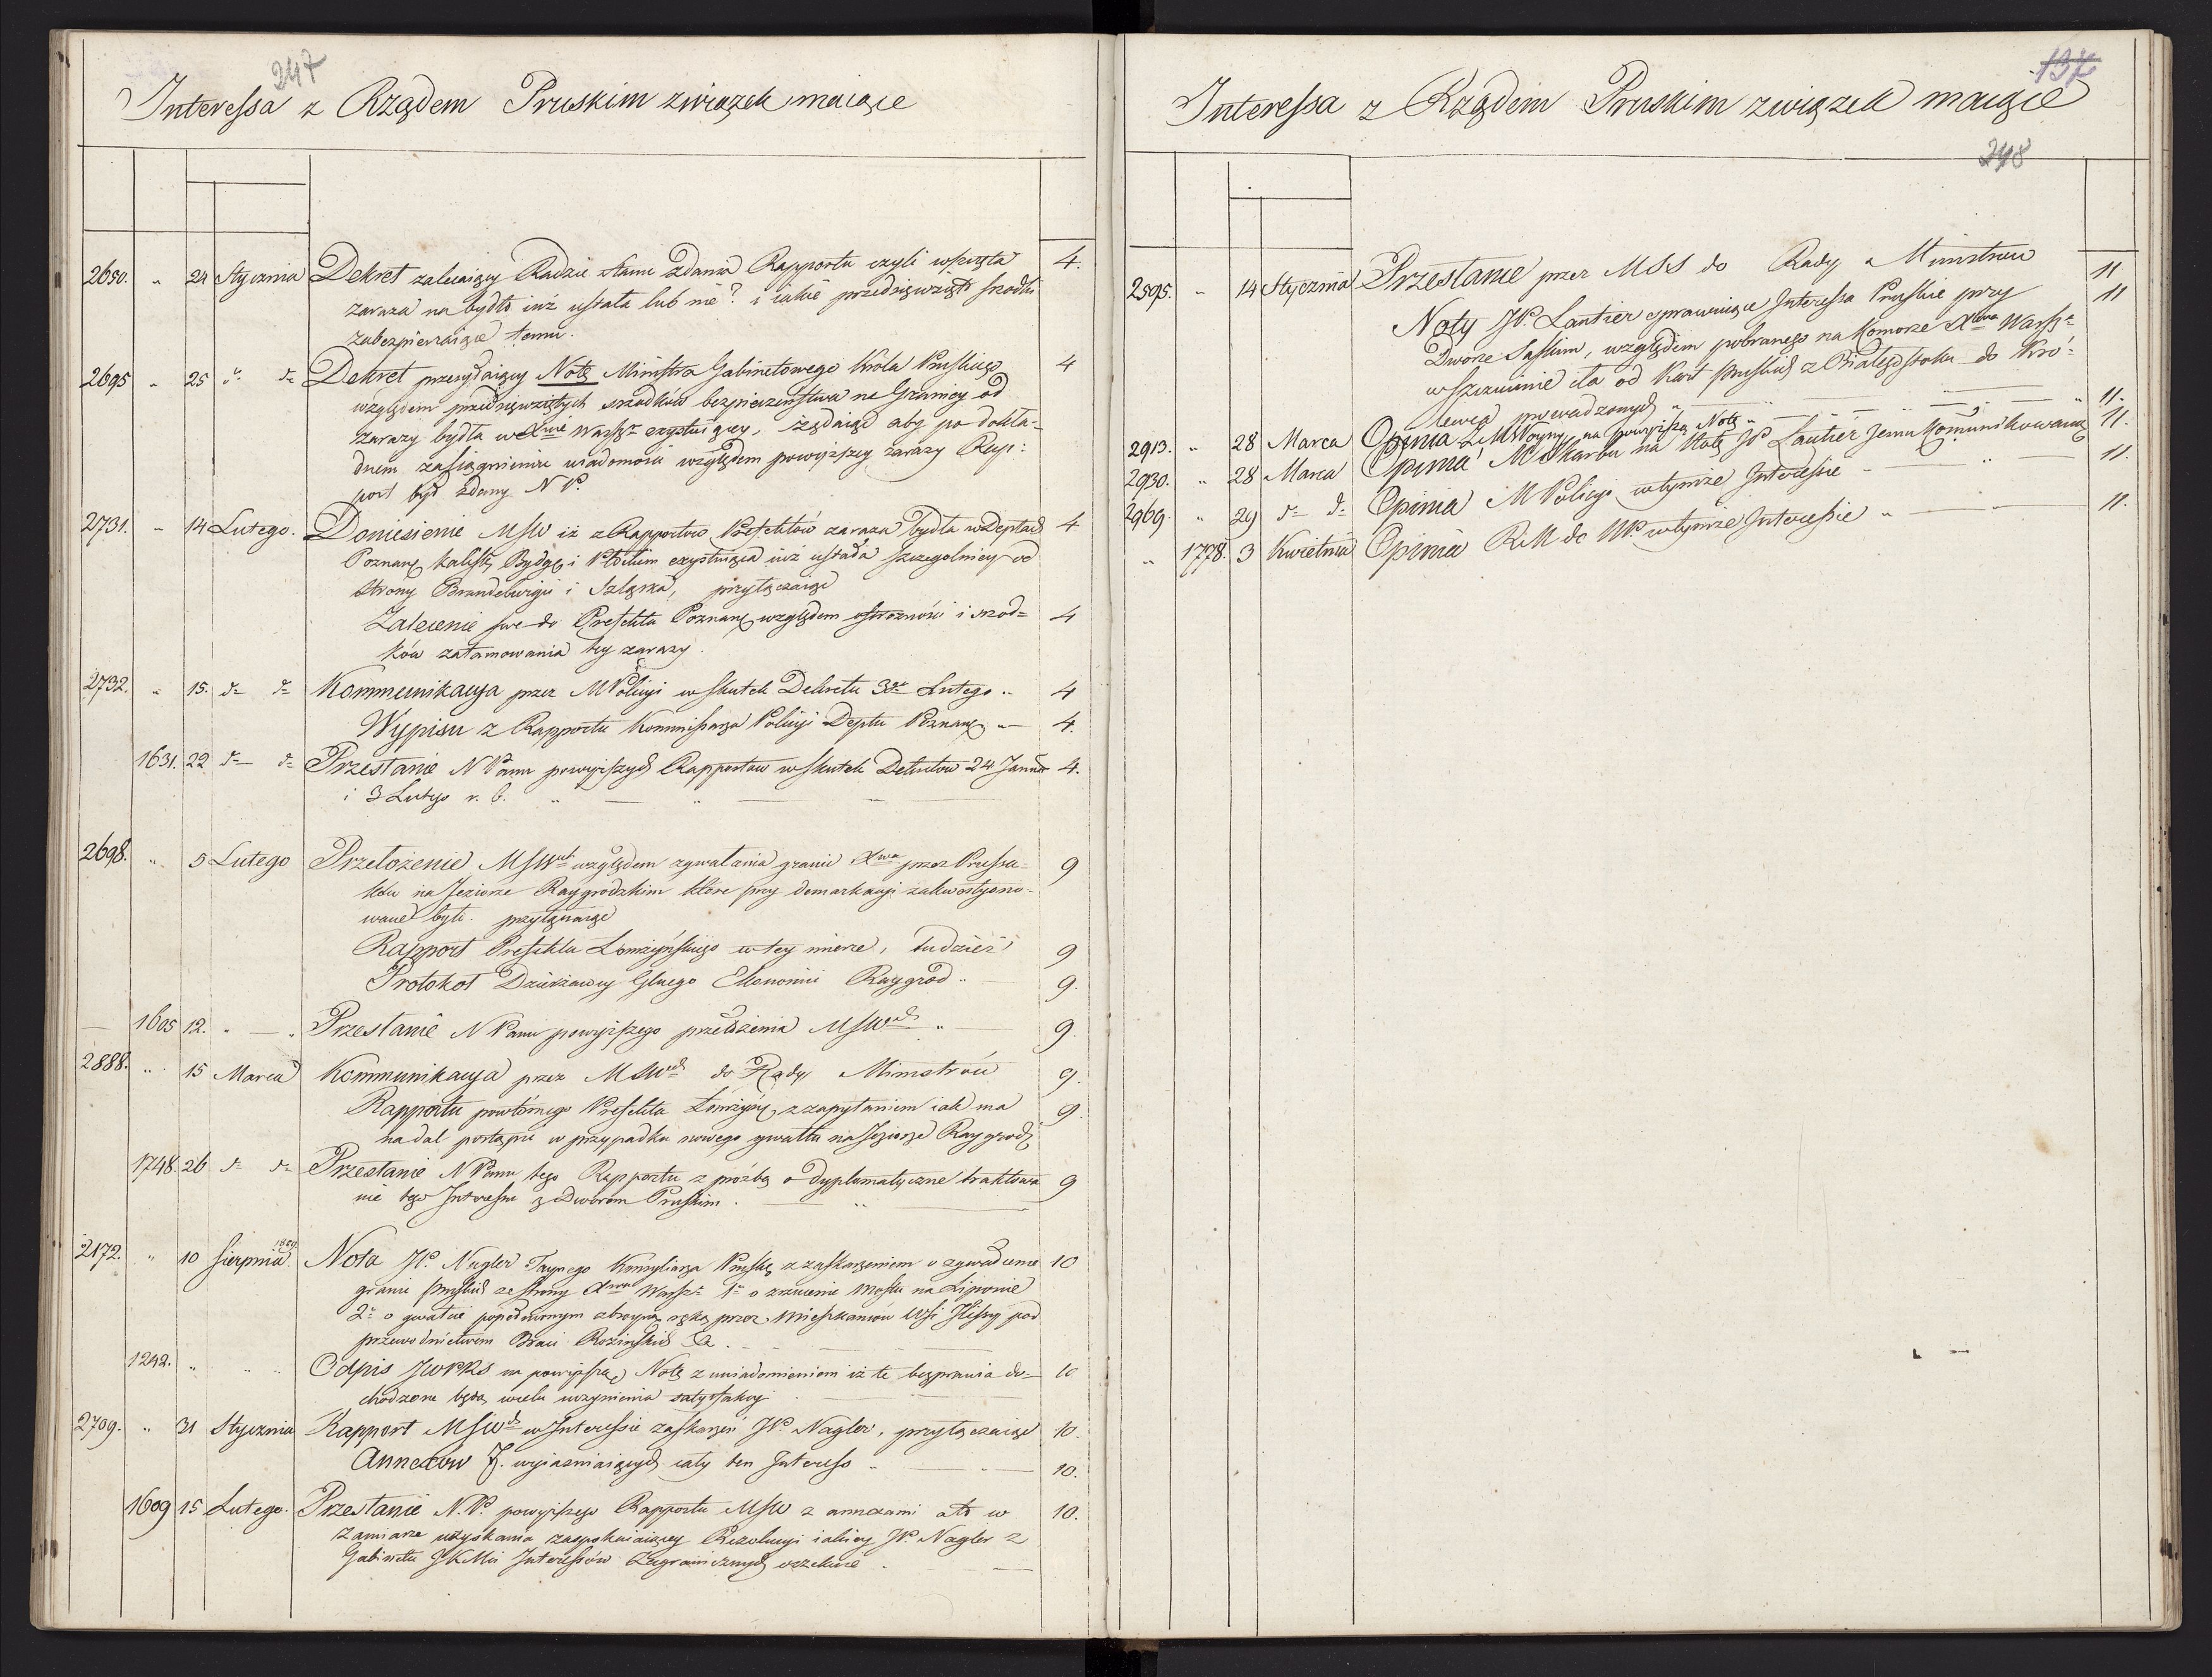 247
Interessa z Rządem Pruskim związek maiące
2650. " 24 Stycznia Dekret zalecaiący Radzie Stanu zdania Rapportu czyli wszczęta 4.
zaraza na bydło iuż ustała lub nie? i iakie przedsięwzięto srodki
zabezpieczaiące temu.
2695 " 25 do do Dekret przesyłaiący Notę Ministra Gabinetowego Króla Pruskiego 4
względem przedsięwziętych srzodków bezpieczeństwa na Granicy od
zarazy bydła w Xwie Warszo exystuiącey, żądaiąc aby po dokła-
dnem zasiągnieniu wiadomości względem powyższey zarazy Rap:
port był zdany N P.
2731. " 14 Lutego. Doniesienie MSW iż z Rapportów Prefektów zaraza bydła w Deptach 4
Poznań, Kalisk, Bydg, i Płockim exystuiąca iuż ustała szczególniey od
strony Brandeburgii i Szląska, przyłączaiąc
Zalecenie swe do Prefekta Poznań, względem ostrożności i srod= 4
ków zatamowania tey zarazy.
2732. " 15. do do Kommunikacya przez MPolicyi w skutek Dekretu 3go Lutego " 4
Wypisu z Rapportu Kommissarza Policyi Deptu Poznań " — 4.
1631. 22 do do Przesłanie N Panu powyższych Rapportów w skutek Dekretów 24 Januar 4.
i 3 Lutego r. b. " — " —
2698. " 5 Lutego Przełożenie MSW względem zgwałcenia granic Xwa przez Prussa-
ków na Jeziorze Raygrodzkim które przy demarkacyi zakwestyono- 9
wane było. przyłączaiąc
Rapport Prefekta Łomżyńskiego w tey mierze, tudzież 9
Protokoł Dzierżawcy Głnego Ekonomii Raygrod " 9.
1605 12. " " Przesłanie N Panu powyższego przełożenia MSW " 9.
2888. " 15 Marca Kommunikacya przez MSW do Rady Ministrów 9.
Rapportu powtórnego Prefekta Łomżyń, z zapytaniem iak ma 9.
nadal postąpić w przypadku nowego gwałtu na Jeziorze Raygrodz
1748. 26 do do Przesłanie N Panu tego Rapportu z prozbą o dyplomatyczne traktowa 9
nie tego Interessu z Dworem Pruskim. — "
2172. " 10 Sierpnia 1809. Nota JP. Nagler Taynego Konsyliarza Prusk, z zaskarżeniem o zgwałcenie 10
granic Pruskich ze strony Xwa Warszo 1o o zrzucenie mostu na Liponie
2o o gwałcie popełnionym zbroyną ręką przez Mieszkańców Wsi Hissy pod
przewodnictwem Braci Rozinskich &.
1242. " " Odpis JWPRS na powyższą Notę z uwiadomieniem iż te bezprawia do= 10
chodzone będą wcelu uczynienia satysfakcyi
2709. " 31 Stycznia Rapport MSW w Interessie zaskarżeń JP. Nagler, przyłączaiąc 10.
Annexów 7. wyiaśniaiących cały ten Interess " — 10.
1609 15 Lutego. Przesłanie N.P. powyższego Rapportu MSW z annexami a to w 10.
zamiarze uzyskania zaspokaiaiącey Rezolucyi iakiey JP. Nagler z
Gabinetu JKMci Interessów Zagranicznych oczekuie.
137
Interessa z Rządem Pruskim związek maiące
248
2595. " 14 Stycznia Przesłanie przez MSS do Rady Ministrów 11
Noty JP. Lautier sprawuiące Interessa Pruskie przy 11
Dworze Saskim, względem pobranego na Komorze Xtwa Warszo
w Szczuczynie cła od Kart Pruskich z Białegostoku do Kró-
lewca prowadzonych " —
2913. " 28 Marca Opinia MWoyny na powyższą Notę " 11.
2930. " 28 Marca Opinia MSkarbu na Notę JP Lautier Jemu kommunikowaną 11.
2969. " 29 do do Opinia MPolicyi w tymże Interessie " 11.
" 1778. 3 Kwietnia Opinia RM do NP. w tymże Interessie " — 11.